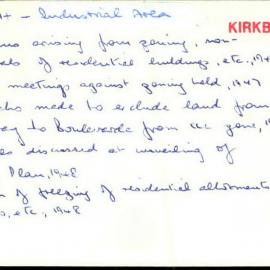 – Industrial Area
KIRKB
arising from zoning, non-
of residential buildings, etc., 19
meetings against zoning held, 1947
made to exclude land from
to Boulevarde from zone, 19
discussed at unveiling of
Plan, 1948
of freezing of residential allotments
etc., 1948